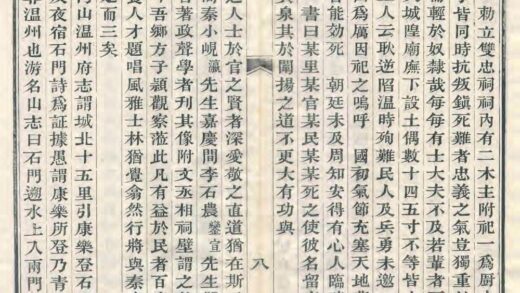 勅立雙忠祠祠內有二木主附祀一爲厨
乎皆同時抗叛鎮死難者忠義之氣豈獨重
輕於奴隸哉每每有士大夫不及若輩者
城隍廟廡下設土偶數十四五寸不等皆
人云耿逆陷溫時殉難民人及兵勇未邀
爲厲因祀之嗚呼 國初氣節充塞天地
能効死 朝廷未及周知安得有心人臨
書曰某里某官某民某某死之使彼名留
泉其於闡揚之道不更大有功與
八
之人士於官之賢者深愛敬之直道猶在斯
秦小峴瀛先生嘉慶間李石農鑾宣先生
著政聲學者刊其像附文丞相祠壁謂之
吾鄉方子穎觀察蒞此凡有益於民者百
人才題唱風雅士林猶覺翕然行將與秦
而三矣
山溫州府志謂城北十五里引康樂登石
夜宿石門詩爲証據愚謂康樂所登乃青
溫州也游名山志曰石門遡水上入兩門